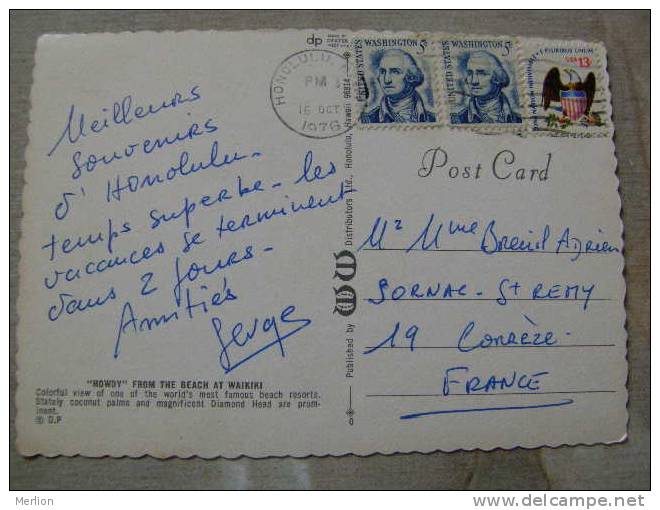 Meilleurs
souvenirs
d'Honolulu.
temps superbe. les
vacances se terminent
dans 2 jours.
Amitiés
Serge
"HOWDY" FROM THE BEACH AT WAIKIKI
Colorful view of one of the world's most famous beach resorts.
Stately coconut palms and magnificent Diamond Head are prom-
inent.
© D.P
dp
HONOLULU,
PM
16 OCT
1976
UNITED STATES
WASHINGTON 5c
UNITED STATES
WASHINGTON 5c
E PLURIBUS UNUM
USA 13c
Published by
Distributors Ltd., Honolulu, Hawaii 96814
Post Card
Mr Mme Breuil Adrien
SORNAC - St REMY
19 Corrèze.
FRANCE
Merlion
http://www.delcampe.net